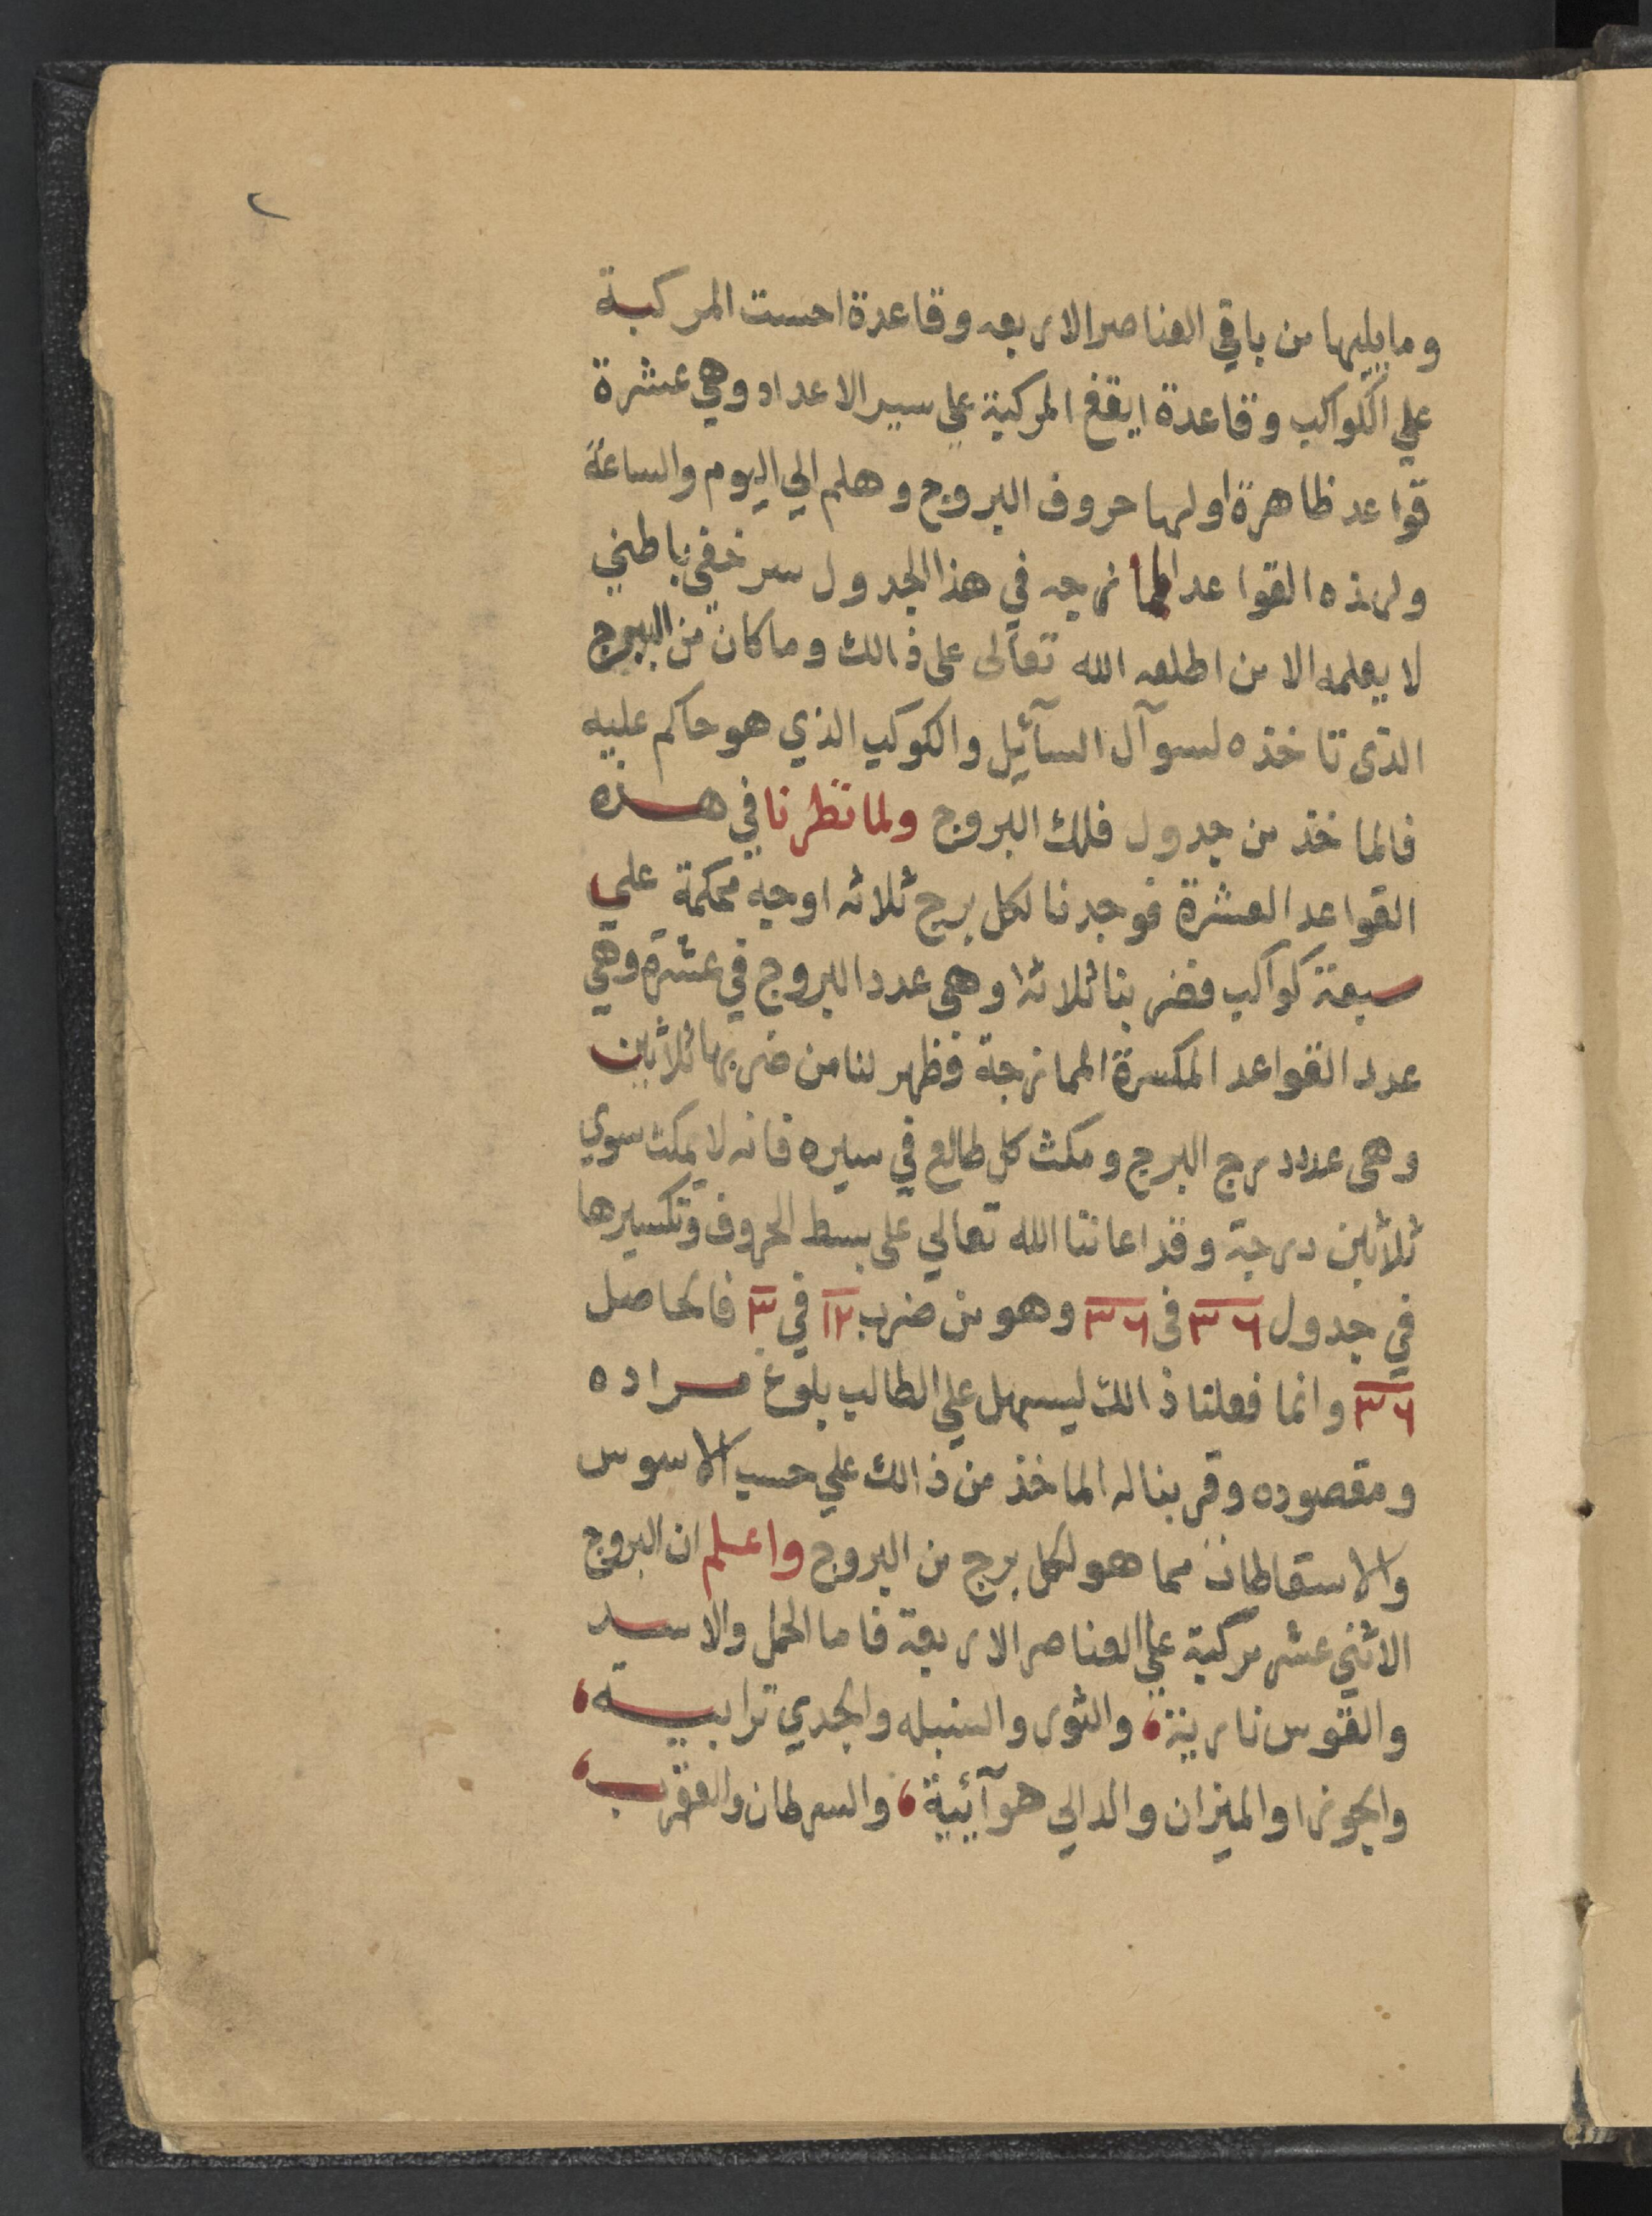 ٢
وما يليها من باقي العناصر الاربعه وقاعدة احست المركبة
علي الكواكب وقاعدة ايقغ المركبة علي سير الاعداد وهي عشرة
قواعد ظاهرة اولها حروف البروج وهلم الي اليوم والساعة
ولهذه القواعد المازجه في هذا الجدول سر خفي باطني
لا يعلمه الا من اطلعه الله تعالى على ذالك وما كان من البروج
الذى تاخذه لسوآل السآئيل والكوكب الذي هو حاكم عليه
فالماخذ من جدول فلك البروج ولما نظرنا في هذه
القواعد العشرة فوجدنا لكل برج ثلاثه اوجه محكمة علي
سبعة كواكب فضربنا ثلاثة وهى عدد البروج في عشرة وهي
عدد القواعد المكسرة الممازجة فظهر لنا من ضربها ثلاثين
وهى عدد درج البرج ومكث كل طالع في سيره فانه لا يمكث سوي
ثلاثين درجة وقد اعاننا الله تعالي على بسط الحروف وتكسيرها
في جدول ٣٦ فى ٣٦ وهو من ضرب ١٢ في ٣ فالحاصل
٣٦ وانما فعلنا ذالك ليسهل علي الطالب بلوغ مراده
ومقصوده وقربنا له الماخذ من ذالك علي حسب الاسوس
والاستقاطات مما هو لكل برج من البروج واعلم ان البروج
الاثني عشر مركبة علي العناصر الاربعة فاما الحمل والاسد
والقوس نارية، والثور والسنبله والجدي ترابية،
والجوزا والميزان والدالي هوآئية، والسرطان والعقرب،